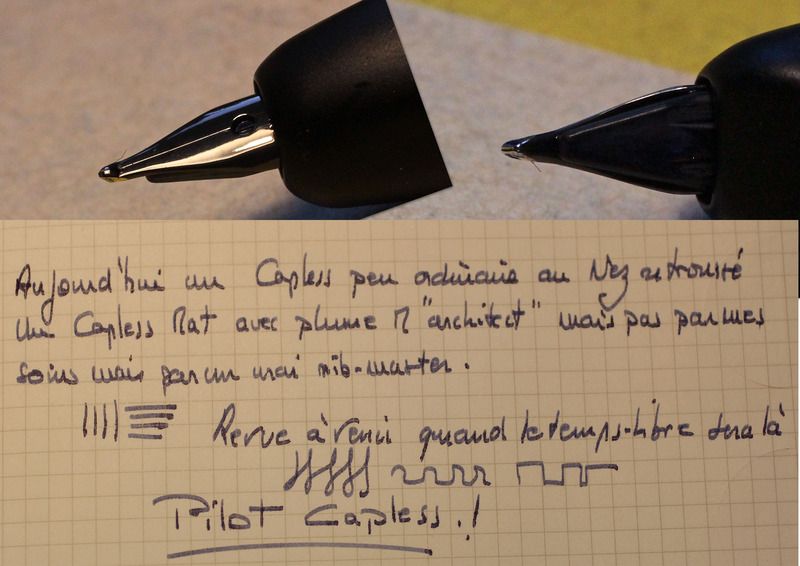 Aujourd'hui un Capless peu ordinaire au Nez retroussé
Un Capless Mat avec plume M "architect" mais pas par mes
soins mais par un vrai nib-master.
Revue à venir quand le temps-libre sera là
Pilot Capless.!